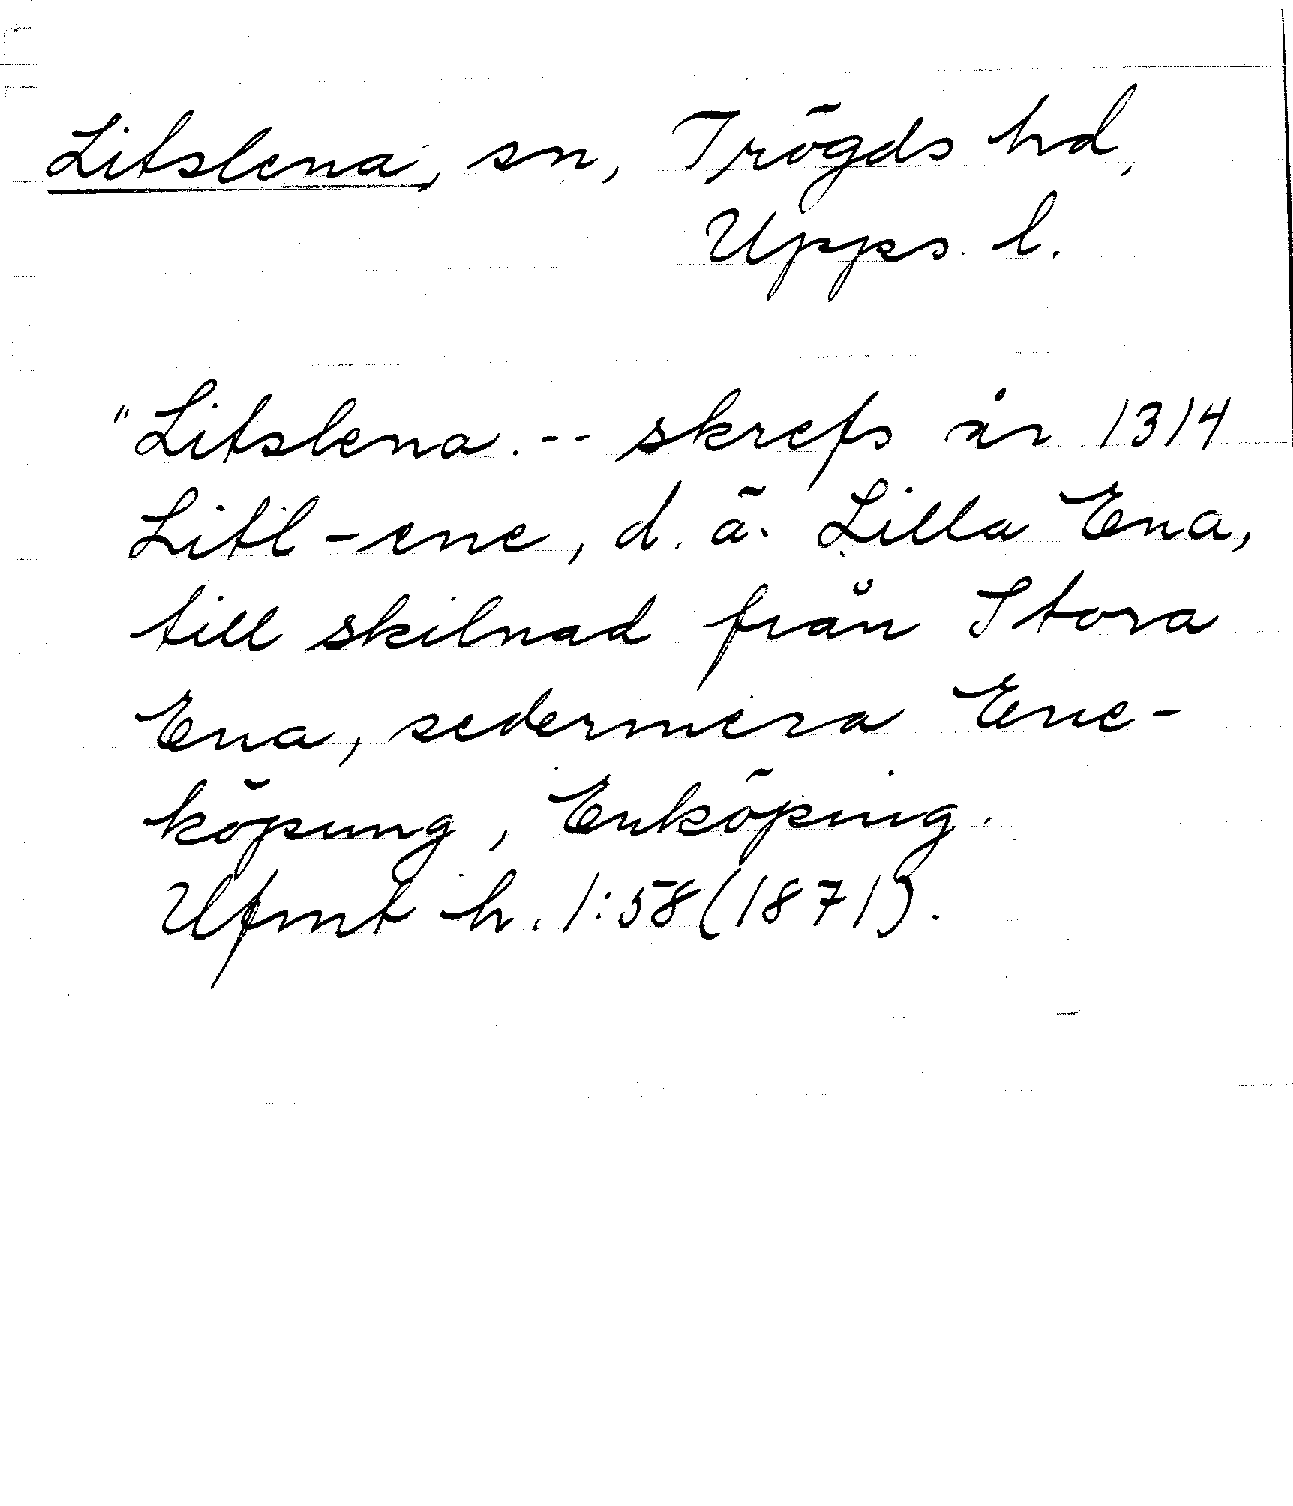 Litslena, sn, Trögds hd,
Upps. l.
"Litslena. -- skrefs år 1314
Litl-ene, d. ä. Lilla Ena,
till skilnad från Stora
Ena, sedermera Ene-
köpung, Enköping.
Ufmt h. 1:58 (1871).